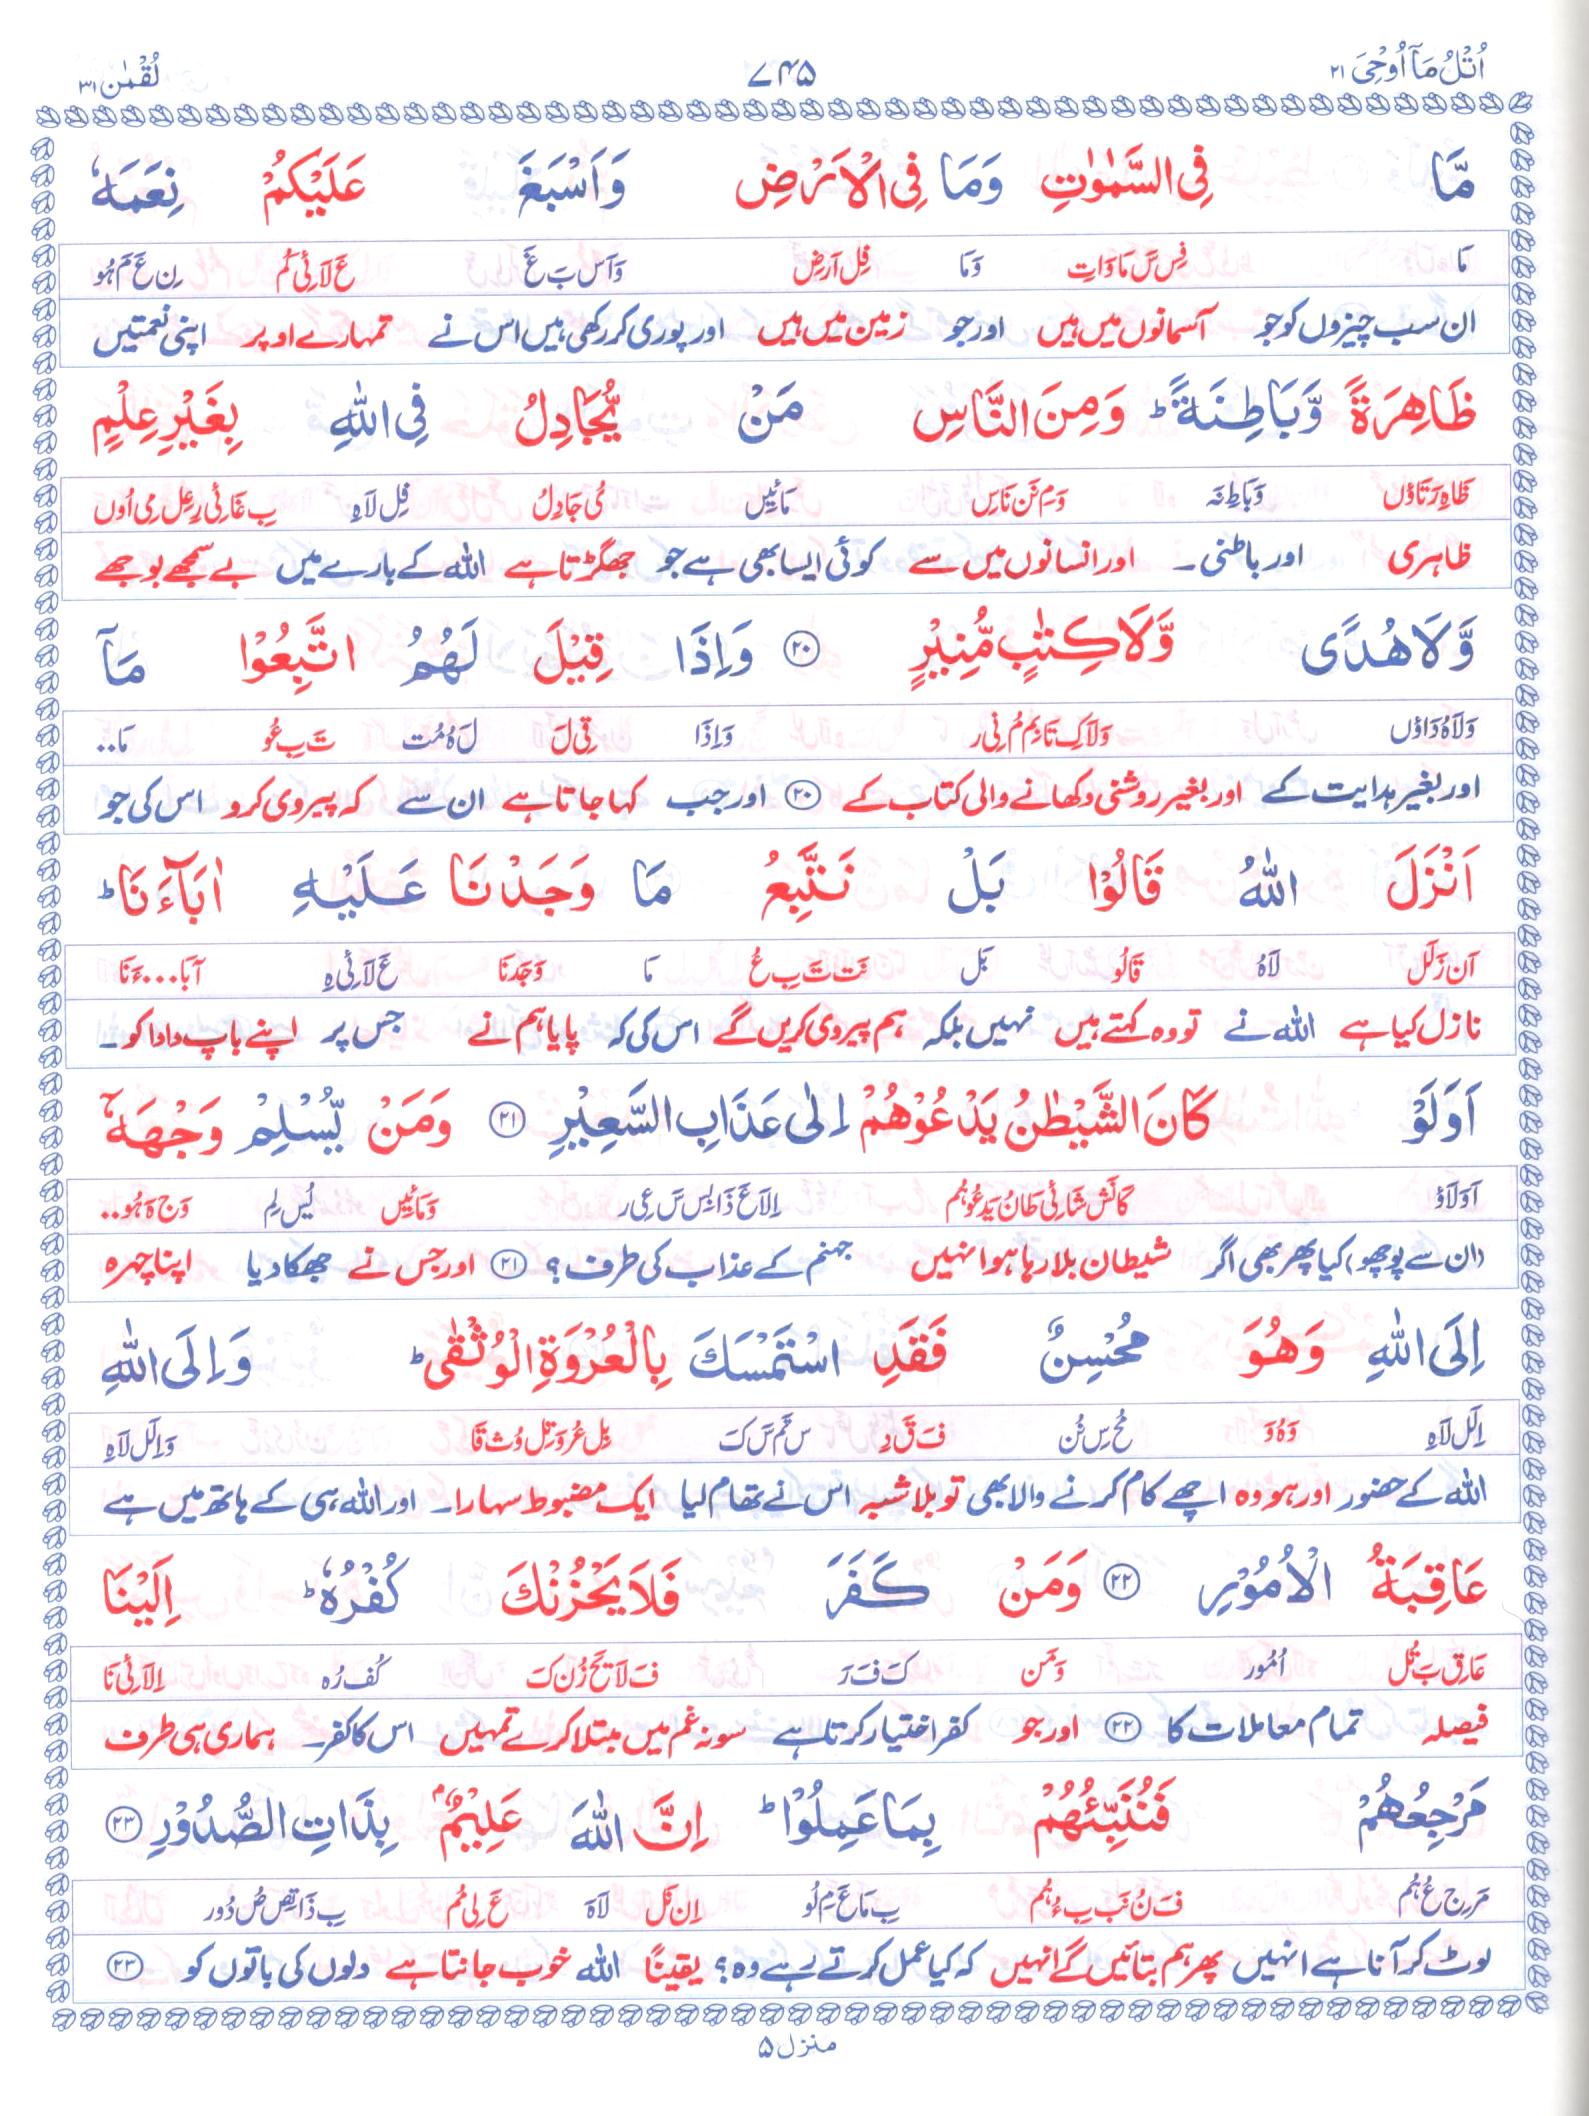 اُتْلُ مَآ اُوْحِیَ ۲۱ ۷۴۵ لُقْمٰن ۳۱
مَّا فِی السَّمٰوٰتِ وَمَا فِی الْاَرْضِ وَاَسْبَغَ عَلَیْكُمْ نِعَمَهٗ
مَا فِس سَ مَا وَاتِ وَ مَا فِل اَرضِ وَ اَس بَ غَ عَ لَائی کُم نِ عَ مَ ہُو
ان سب چیزوں کو جو آسمانوں میں ہیں اور جو زمین میں ہیں اور پوری کر رکھی ہیں اس نے تمہارے اوپر اپنی نعمتیں
ظَاهِرَةً وَّبَاطِنَةً ؕ وَمِنَ النَّاسِ مَنْ یُّجَادِلُ فِی اللّٰهِ بِغَیْرِ عِلْمٍ
ظَاہِ رَ تَاوُں وَ بَا طِ نَہ وَ مِ نَن نَاسِ مَائیں یُ جَادِلُ فِل لَاہِ بِ غَائی رِ عِل مِی اُوں
ظاہری اور باطنی۔ اور انسانوں میں سے کوئی ایسا بھی ہے جو جھگڑتا ہے اللہ کے بارے میں بے سمجھے بوجھے
وَّلَا هُدًی وَّلَا كِتٰبٍ مُّنِیْرٍ ۲۰ وَاِذَا قِیْلَ لَهُمُ اتَّبِعُوْا مَآ
وَلَا ہُ دَاوُں وَلَا کِ تَا بِم مُ نِی ر وَ اِذَا قِی لَ لَ ہُ مُت تَ بِ عُو مَا..
اور بغیر ہدایت کے اور بغیر روشنی دکھانے والی کتاب کے ۲۰ اور جب کہا جاتا ہے ان سے کہ پیروی کرو اس کی جو
اَنْزَلَ اللّٰهُ قَالُوْا بَلْ نَتَّبِعُ مَا وَجَدْنَا عَلَیْهِ اٰبَآءَنَا ؕ
اَن زَلَل لَاہُ قَالُو بَل نَت تَ بِ عُ مَا وَجَدنَا عَ لَائی ہِ آبَا...ءَ نَا
نازل کیا ہے اللہ نے تو وہ کہتے ہیں نہیں بلکہ ہم پیروی کریں گے اس کی کہ پایا ہم نے جس پر اپنے باپ دادا کو۔
اَوَلَوْ كَانَ الشَّیْطٰنُ یَدْعُوْهُمْ اِلٰی عَذَابِ السَّعِیْرِ ۲۱ وَمَنْ یُّسْلِمْ وَجْهَهٗۤ
اَوَلَاوْ کَانَش شَائی طَانُ یَدعُوہُم اِلَا عَ ذَابِس سَ عِی ر وَ مَائیں یُس لِم وَج ہَ ہُو..
(ان سے پوچھو) کیا پھر بھی اگر شیطان بلا رہا ہو انہیں جہنم کے عذاب کی طرف؟ ۲۱ اور جس نے جھکا دیا اپنا چہرہ
اِلَی اللّٰهِ وَهُوَ مُحْسِنٌ فَقَدِ اسْتَمْسَكَ بِالْعُرْوَةِ الْوُثْقٰی ؕ وَاِلَی اللّٰهِ
اِلَل لَاہِ وَ ہُوَ مُح سِ نُن فَ قَ دِ س تَم سَ کَ بِل عُروَتِل وُث قَا وَ اِلَل لَاہِ
اللہ کے حضور اور ہو وہ اچھے کام کرنے والا بھی تو بلاشبہ اس نے تھام لیا ایک مضبوط سہارا۔ اور اللہ ہی کے ہاتھ میں ہے
عَاقِبَةُ الْاُمُوْرِ ۲۲ وَمَنْ كَفَرَ فَلَا یَحْزُنْكَ كُفْرُهٗ ؕ اِلَیْنَا
عَا قِ بَ تُل اُمُور وَ مَن کَ فَ رَ فَ لَا یَح زُن کَ کُف رُہ اِلَائی نَا
فیصلہ تمام معاملات کا ۲۲ اور جو کفر اختیار کرتا ہے سو نہ غم میں مبتلا کرے تمہیں اس کا کفر۔ ہماری ہی طرف
مَرْجِعُهُمْ فَنُنَبِّئُهُمْ بِمَا عَمِلُوْا ؕ اِنَّ اللّٰهَ عَلِیْمٌۢ بِذَاتِ الصُّدُوْرِ ۲۳
مَر جِ عُ ہُم فَ نُ نَب بِ ءُ ہُم بِ مَا عَ مِ لُو اِن نَل لَاہَ عَ لِی مُم بِ ذَاتِص صُ دُور
لوٹ کر آنا ہے انہیں پھر ہم بتائیں گے انہیں کہ کیا عمل کرتے رہے وہ؟ یقینًا اللہ خوب جانتا ہے دلوں کی باتوں کو ۲۳
منزل ۵